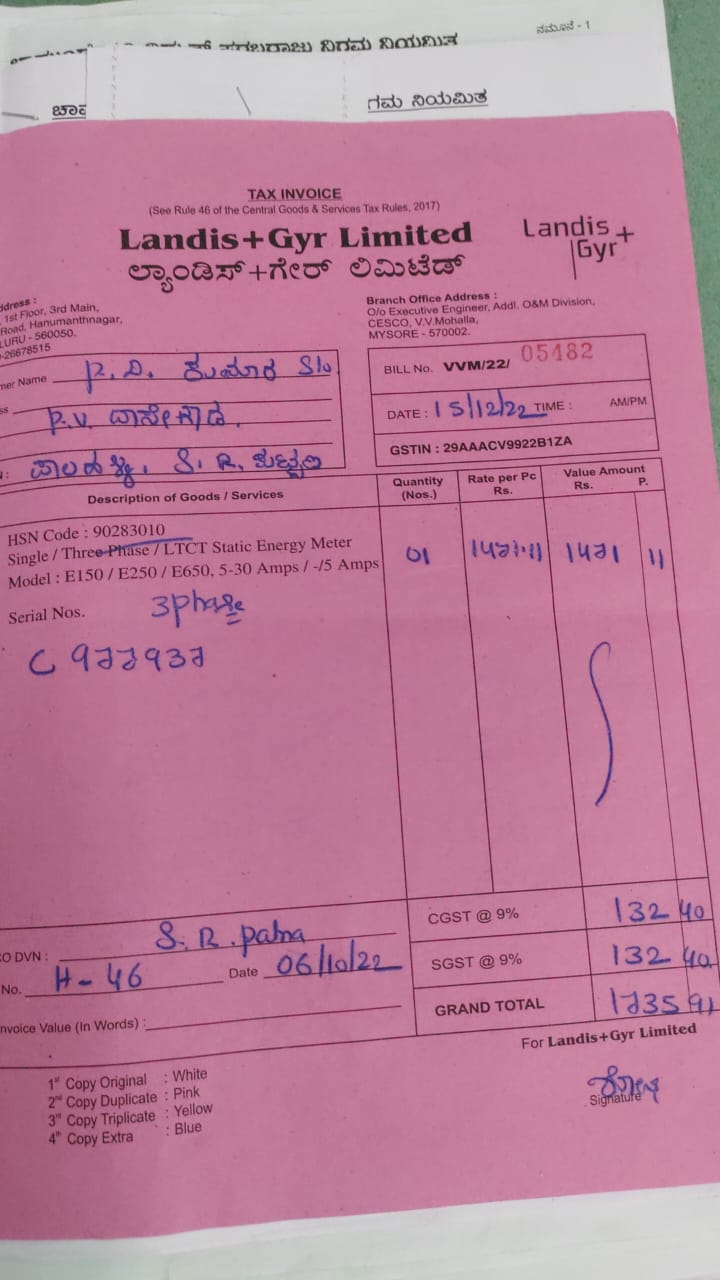 ನಮೂನೆ - 1
ನಿಗಮ ನಿಯಮಿತ
ಚಾವ
ಗಮ ನಿಯಮಿತ
TAX INVOICE
(See Rule 46 of the Central Goods & Services Tax Rules, 2017)
Landis+Gyr Limited
ಲ್ಯಾಂಡಿಸ್+ಗೇರ್ ಲಿಮಿಟೆಡ್
Landis+
Gyr
ddress :
, 1st Floor, 3rd Main,
Road, Hanumanthnagar,
LURU - 560050.
-26678515
Branch Office Address :
O/o Executive Engineer, Addl. O&M Division,
CESCO, V.V.Mohalla,
MYSORE - 570002.
ner Name P. D. ಕುಮಾರ S/o
ss P.V. ದಾಸೇಗೌಡ.
BILL No. VVM/22/ 05182
DATE : 15/12/22 TIME : AM/PM
GSTIN : 29AAACV9922B1ZA
S. R.
Description of Goods / Services
Quantity (Nos.)
Rate per Pc Rs.
Value Amount Rs. P.
HSN Code : 90283010
Single / Three Phase / LTCT Static Energy Meter
Model : E150 / E250 / E650, 5-30 Amps / -/5 Amps
01 1471.11 1471 11
Serial Nos. 3phase
C 977937
CGST @ 9% 132 40
SGST @ 9% 132 40
GRAND TOTAL 1735 91
O DVN : S. R. Patna
No. H - 46 Date 06/10/22
nvoice Value (In Words) :
For Landis+Gyr Limited
Signature
1st Copy Original : White
2nd Copy Duplicate : Pink
3rd Copy Triplicate : Yellow
4th Copy Extra : Blue